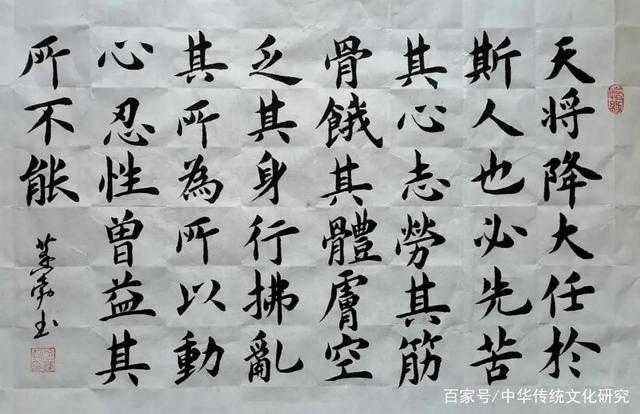 天将降大任於
斯人也必先苦
其心志勞其筋
骨餓其體膚空
乏其身行拂亂
其所為所以動
心忍性曾益其
所不能
百家号/中华传统文化研究